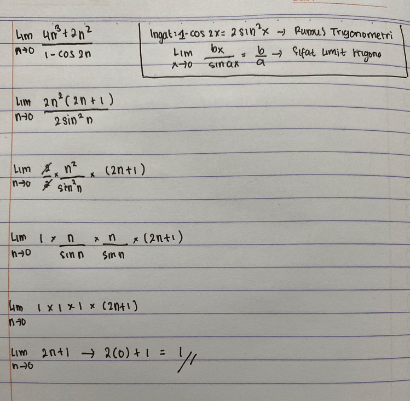 Lim n→0 4n³+2n² / 1-cos 2n
Ingat: 1-cos 2x = 2 sin²x → Rumus Trigonometri
Lim x→0 bx / sin ax = b/a → Sifat Limit trigono
Lim n→0 2n²(2n+1) / 2 sin² n
Lim n→0 2/2 × n²/sin²n × (2n+1)
Lim n→0 1 × n/sin n × n/sin n × (2n+1)
Lim n→0 1 × 1 × 1 × (2n+1)
Lim n→0 2n+1 → 2(0)+1 = 1//